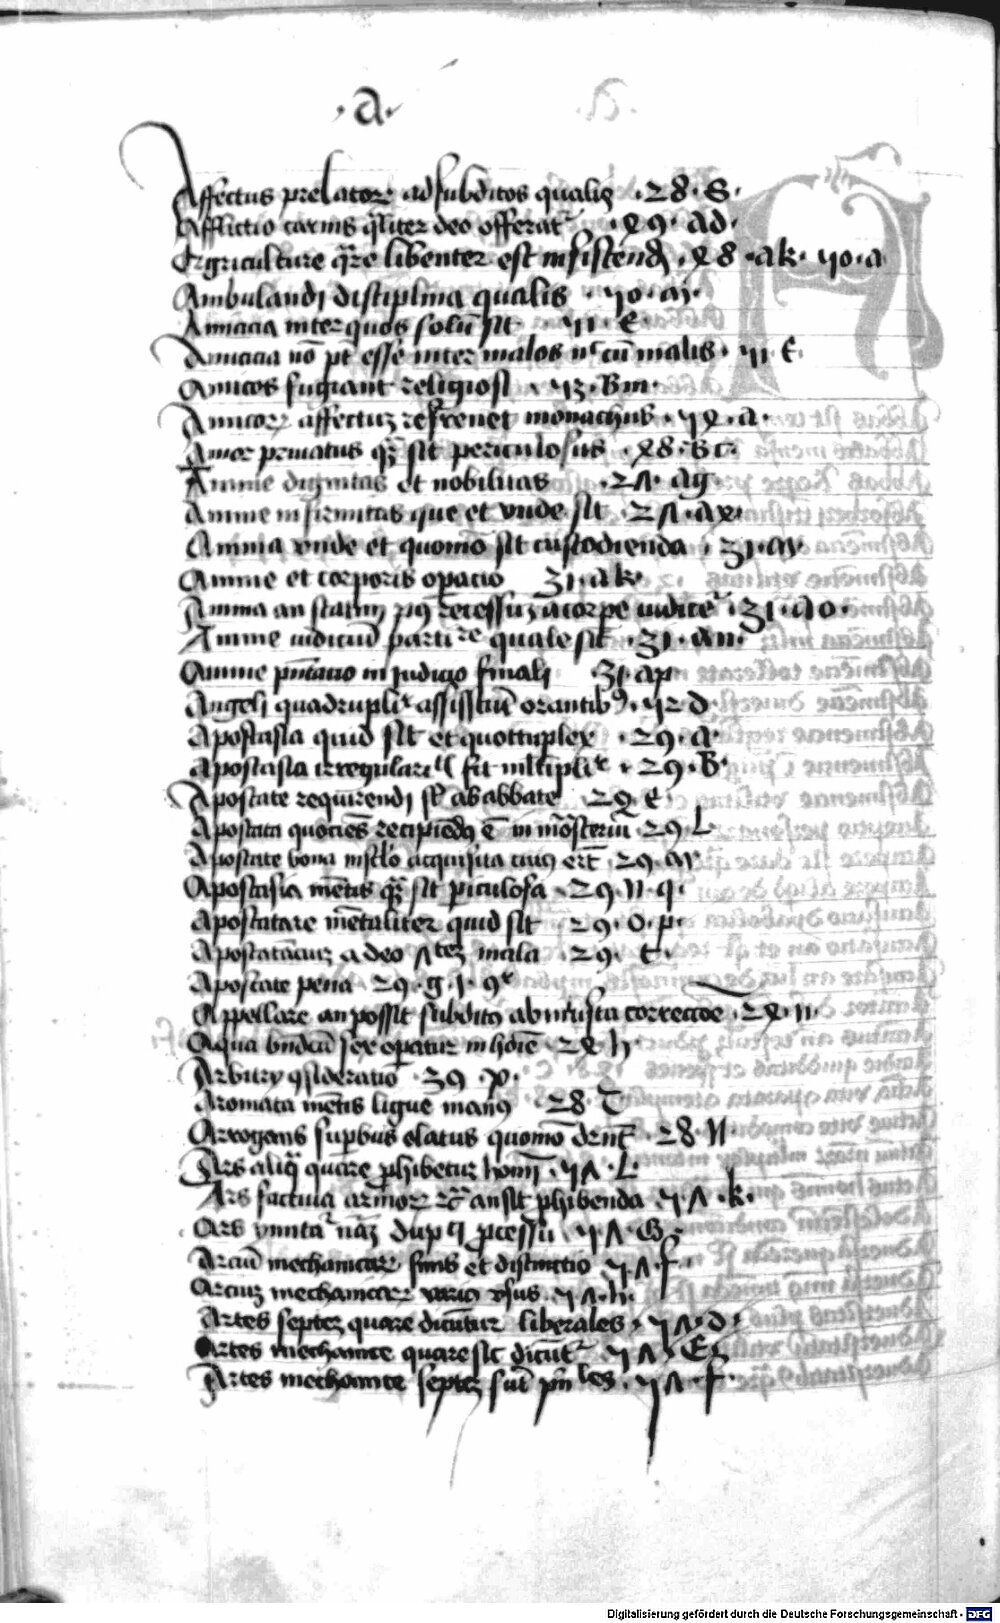 .a.
Affectus prelatorꝝ ad subditos qualis .28.S.
Afflictio carnis qͣliter deo offeratᷣ .49.ad.
Agriculture qͣre libenter est insistendū .48.ak. 70.a
Ambulandi disciplina qualis .70.ai.
Amicicia inter quos solū sit .71.E.
Amicicia nō pt̄ esse inter malos nͨ cū malis .71.E.
Amicos fugiant religiosi .73.Bm.
Amicorꝝ affectuꝫ refrenet monachus .74.a.
Amor priuatus qͣꝫ sit periculosus .48.bc.
Anime dignitas et nobilitas .27.ag.
Anime infirmitas que et vnde sit .27.ax.
Anima vnde et quomō sit custodienda .31.ay.
Anime et corporis opacio 31.ak.
Anima an statim recessuꝫ a corpe iudicetᷣ .31.ao.
Anime iudiciū quale sit .31.an.
Anime pn̄tatio in iudicio finali 31.ap
Angeli quadruplʳ assistūt orantibꝰ .72.d.
Apostasia quid sit et quottuplex .29.a.
Apostasia irregularis fit mltiplʳ .29.B.
Apostate requirendi st̄ ab abbate 29.E.
Apostata quociēs recipiēdꝰ ē in mōsteriū .29.L
Apostate bona in sclō acquisita cuiꝰ erūt 29.ay
Apostasia mētis qͣꝫ sit piculosa .29.n.q.
Apostatare mētaliter quid sit .29.o.p.
Apostatācius a deo mala .29.t.
Apostate pena 29.g.i.
Appellare an possit subditꝰ ab iniusta correctōe .24.n.
Aqua bn̄dcā sex opatur in hōie 24 h.
Arbitrij ꝯsideratio .39.p.
Aromata mētis ligue 28 T
Arrogans supbus elatus quomō .28.N.
Ars aliqͣ quare phibetur homī .77.L
Ars factiua armorꝝ ꝛc̄ an sit phibenda .77.k.
Ars .77.G.
Arciū mechanicarꝝ finis et distinctio .77.f.
Arciuꝫ mechanicarꝝ varij vsus .77.h.
Artes septeꝫ quare dicūtur liberales .77.d.
Artes mechanice quare sic dicūtᷣ .77.E.
Artes mechanice septeꝫ sūt pn̄les .77.f.
Digitalisierung gefördert durch die Deutsche Forschungsgemeinschaft - DFG